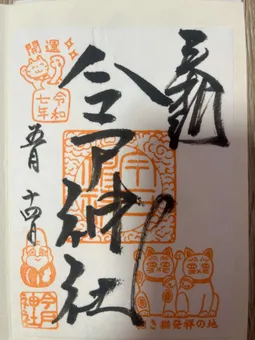 奉拝
今戸神社
開運
令和
七年
五月
十四日
き猫発祥の地